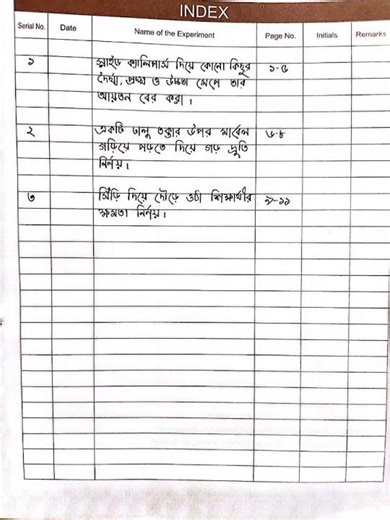 INDEX
Serial No. Date Name of the Experiment Page No. Initials Remarks
১ স্লাইড ক্যালিপার্স দিয়ে কোনো কিছুর ১-৫
দৈর্ঘ্য, প্রস্থ ও উচ্চতা মেপে তার
আয়তন বের করা।
২ একটি ঢালু তক্তার উপর মার্বেল ৬-৮
গড়িয়ে পড়তে দিয়ে গড় দ্রুতি
নির্ণয়।
৩ সিঁড়ি দিয়ে দৌড়ে ওঠা শিক্ষার্থীর ৯-১১
ক্ষমতা নির্ণয়।